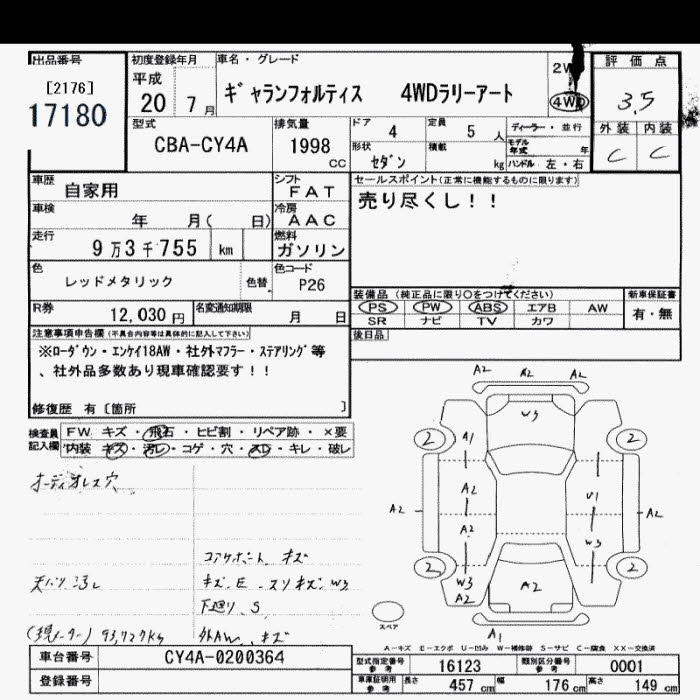 出品番号
[2176]
17180
初度登録年月
平成
20 7月
車名・グレード
ギャランフォルティス 4WDラリーアート
4WD
評価点
3.5
外装 内装
C C
型式
CBA-CY4A
排気量
1998 CC
ドア 4
定員 5 人
ディーラー・並行
形状 セダン
積載 kg
モデル年式 年
ハンドル 左・右
車歴 自家用
シフト FAT
車検 年 月( 日)
冷房 AAC
走行 9万3千755 km
燃料 ガソリン
色 レッドメタリック 色替
色コード P26
セールスポイント(正常に機能するものに限ります)
売り尽くし!!
R券 12,030円
名変通知期限 月 日
装備品(純正品に限り○をつけてください)
PS PW ABS エアB AW
SR ナビ TV カワ
新車保証書
有・無
後日品
注意事項申告欄(不具合内容等は具体的に記入して下さい)
※ローダウン・エンケイ18AW・社外マフラー・ステアリング等
、社外品多数あり現車確認要す!!
修復歴 有〔箇所 〕
検査員記入欄
FW キズ・飛石・ヒビ割・リペア跡・×要
内装 キズ・汚レ・コゲ・穴・スレ・キレ・破レ
オーディオレス穴
キズ
天バリ
キズ、E、スリキズ、W3
下廻リ、S
(現メーター) 93,727Kg
外AW、キズ
A2 A2 A2
W3
2 2
A1
A2 U1
A2 A2
A2 W3
2 2
W3
A2 A2
A1
スペア
A-キズ E-エクボ U-凹み W-補修跡 S-サビ C-腐食 XX-交換済
車台番号 CY4A-0200364
登録番号
型式指定番号 参考 16123
類別区分番号 参考 0001
車庫証明用 参考 長さ 457 cm 幅 176 cm 高さ 149 cm